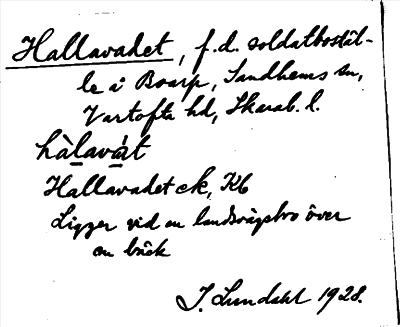 Hallavadet, f.d. soldatbostäl-
le i Boarp, Sandhems sn,
Vartofta hd, Skarab. l.
hàlavát
Hallavadet ck, Kb
Ligger vid en landsvägsbro över
en bäck
J. Lundahl 1928.